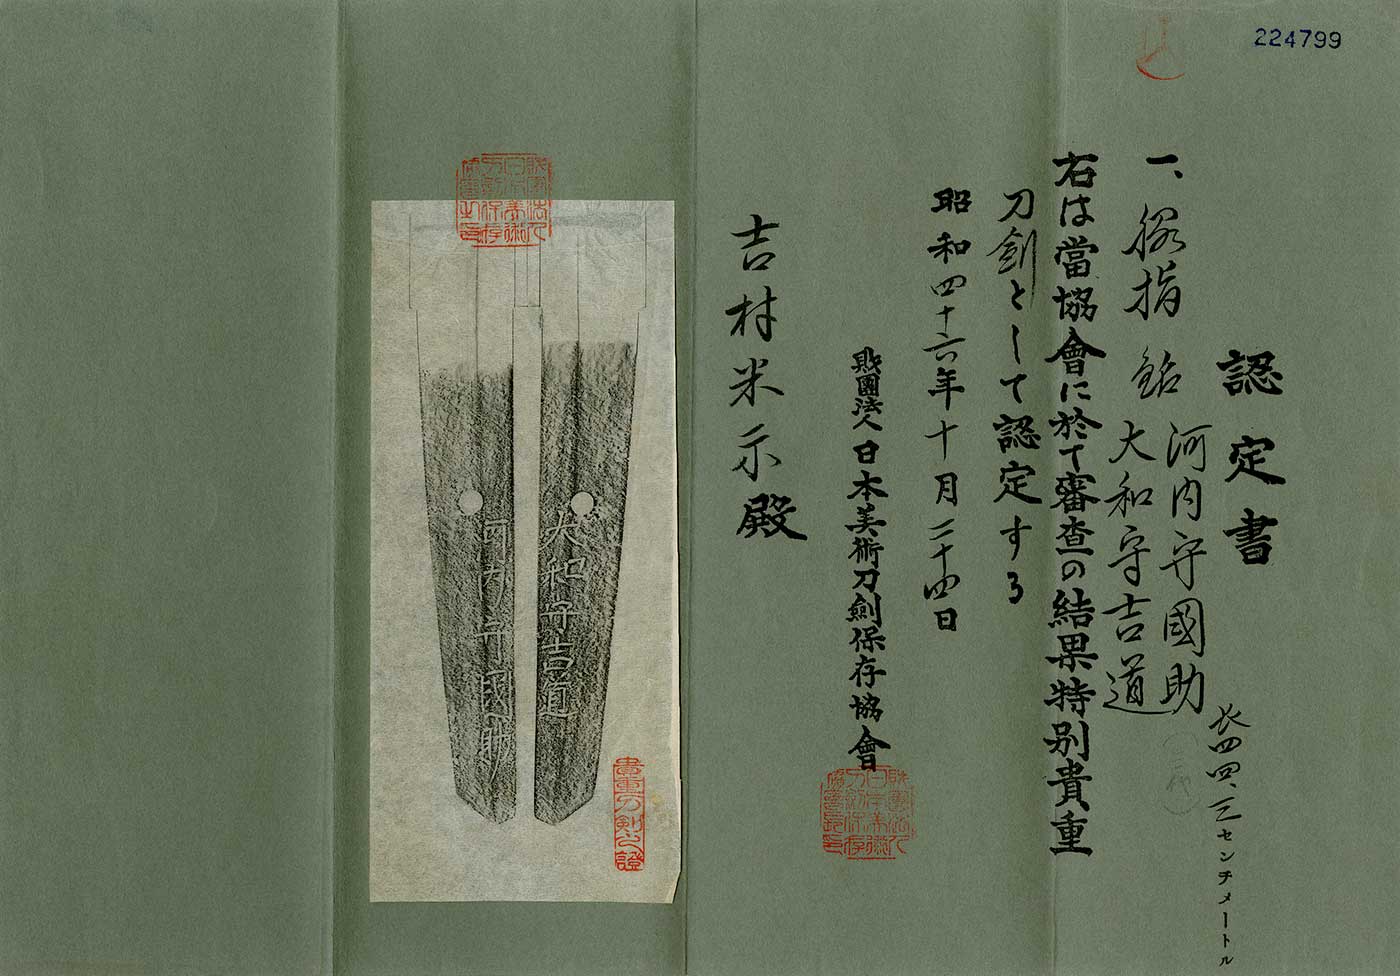 224799
認定書
一、脇指 銘 河内守國助
大和守吉道
長四四、三センチメートル
右は當協會に於て審査の結果特別貴重
刀劍として認定する
昭和四十六年十月二十四日
財團法人日本美術刀劍保存協會
吉村米示殿
大和守吉道
河内守國助
貴重刀剣之證